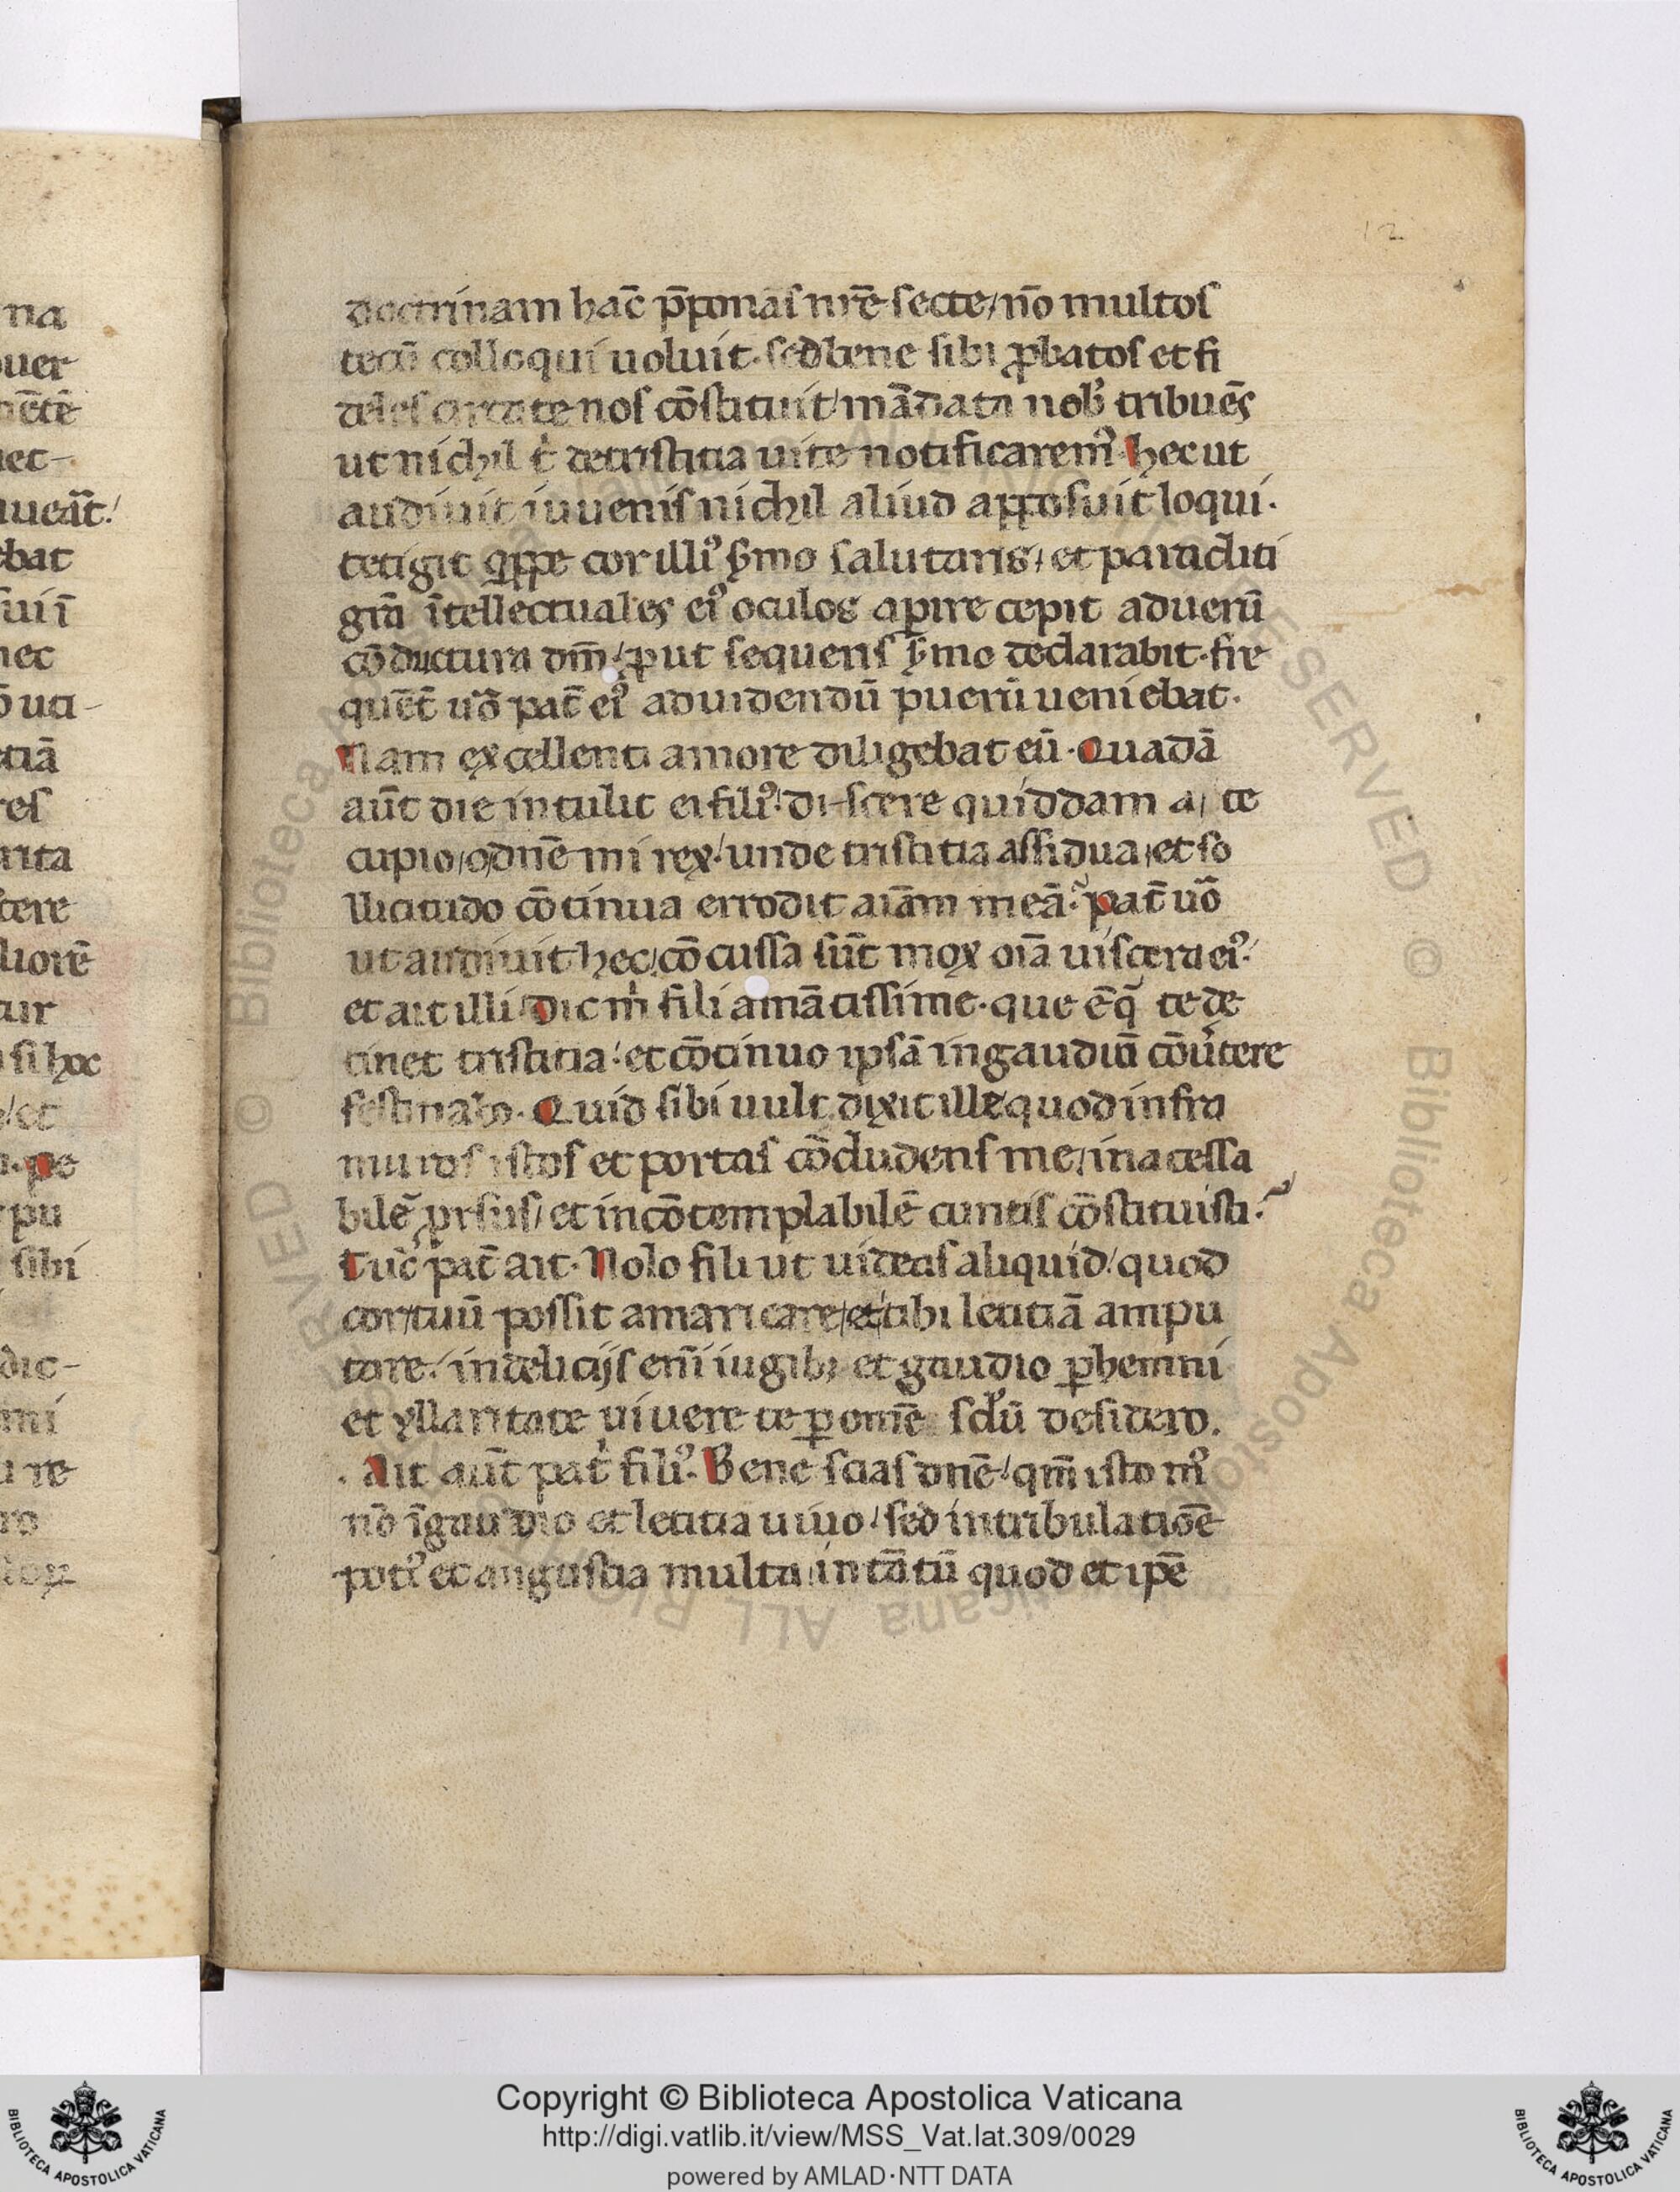 12
doctrinam hac̄ p̄ponas nr̄e secte/ nō multos
tecū colloqui uoluit. sed bene sibi ꝓbatos et fi
deles nos cōstituit/ mādata nob̕ tribuēs
ut nichil t̕ de tristitia uite notificaremꝰ. hec ut
audiuit iuuenis nichil aliud apposuit loqui.
tetigit qͥppe cor illiꝰ ẜmo salutaris, et paracliti
grā ītellectuales eiꝰ oculos apire cepit ad uerū
cōductura dm̄/ ꝓut sequens ẜmo declarabit. fre
quēt̄ u̕o pat̄ eiꝰ ad uidendū puerū ueniebat.
Nam excellenti amore diligebat eū. Quadā
aūt die intulit ei filiꝰ. discere quiddam a te
cupio/ o dn̄e mi rex/ unde tristitia assidua, et so
llicitudo cōtinua errodit aīam meā. pat̄ uō
ut audiuit hec/ cōcussa sūt mox oīa uiscera eiꝰ/
et ait illi/ Dic m̕ fili amātissime. que ē q̄ te de
tinet tristitia/ et cōtinuo ipsā in gaudiū cōu̕tere
festinabo. Quid sibi uult dixit ille quod infra
muros istos et portas cōcludens me, inacessa
bilē ꝓrsus/ et incōtemplabilē cuntis cōstituisti.
Tūc pat̄ ait. Nolo fili ut uideas aliquid/ quod
cor tuū possit amaricare/ et tibi letitiā ampu
tare. in delicijs eni̅ iugibꝫ et gaudio ꝑhenni
et yllaritate uiuere te ꝑ omē scl̕ū desidero.
. Ait aūt pat̕ filiꝰ. Bene scias dn̄e/ qm̄ isto m̊
nō ī gaudio et letitia uiuo/ sed in tribulatiōe
potiꝰ et angustia multa, in tātū quod et ipē
na
uer
ec
ueat̄.
bat
uiī
nec
ō uti-
tiā
res
rita
cere
liorē
tur
si hoc
/ et
pu
sibi
dic-
mi
re
ro
Copyright © Biblioteca Apostolica Vaticana
http://digi.vatlib.it/view/MSS_Vat.lat.309/0029
powered by AMLAD·NTT DATA
BIBLIOTECA APOSTOLICA VATICANA
BIBLIOTECA APOSTOLICA VATICANA